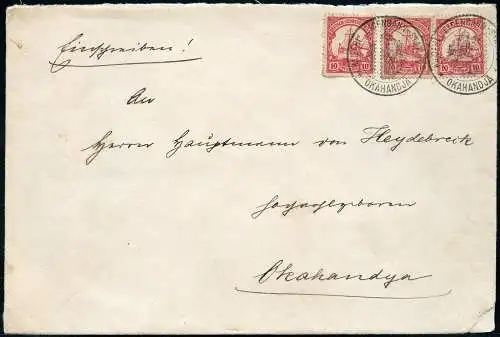 Einschreiben!
10 10 10 10
OKAHANDJA OKAHANDJA
An
Herrn Hauptmann von Heydebreck
Hochwohlgeboren
Okahandya